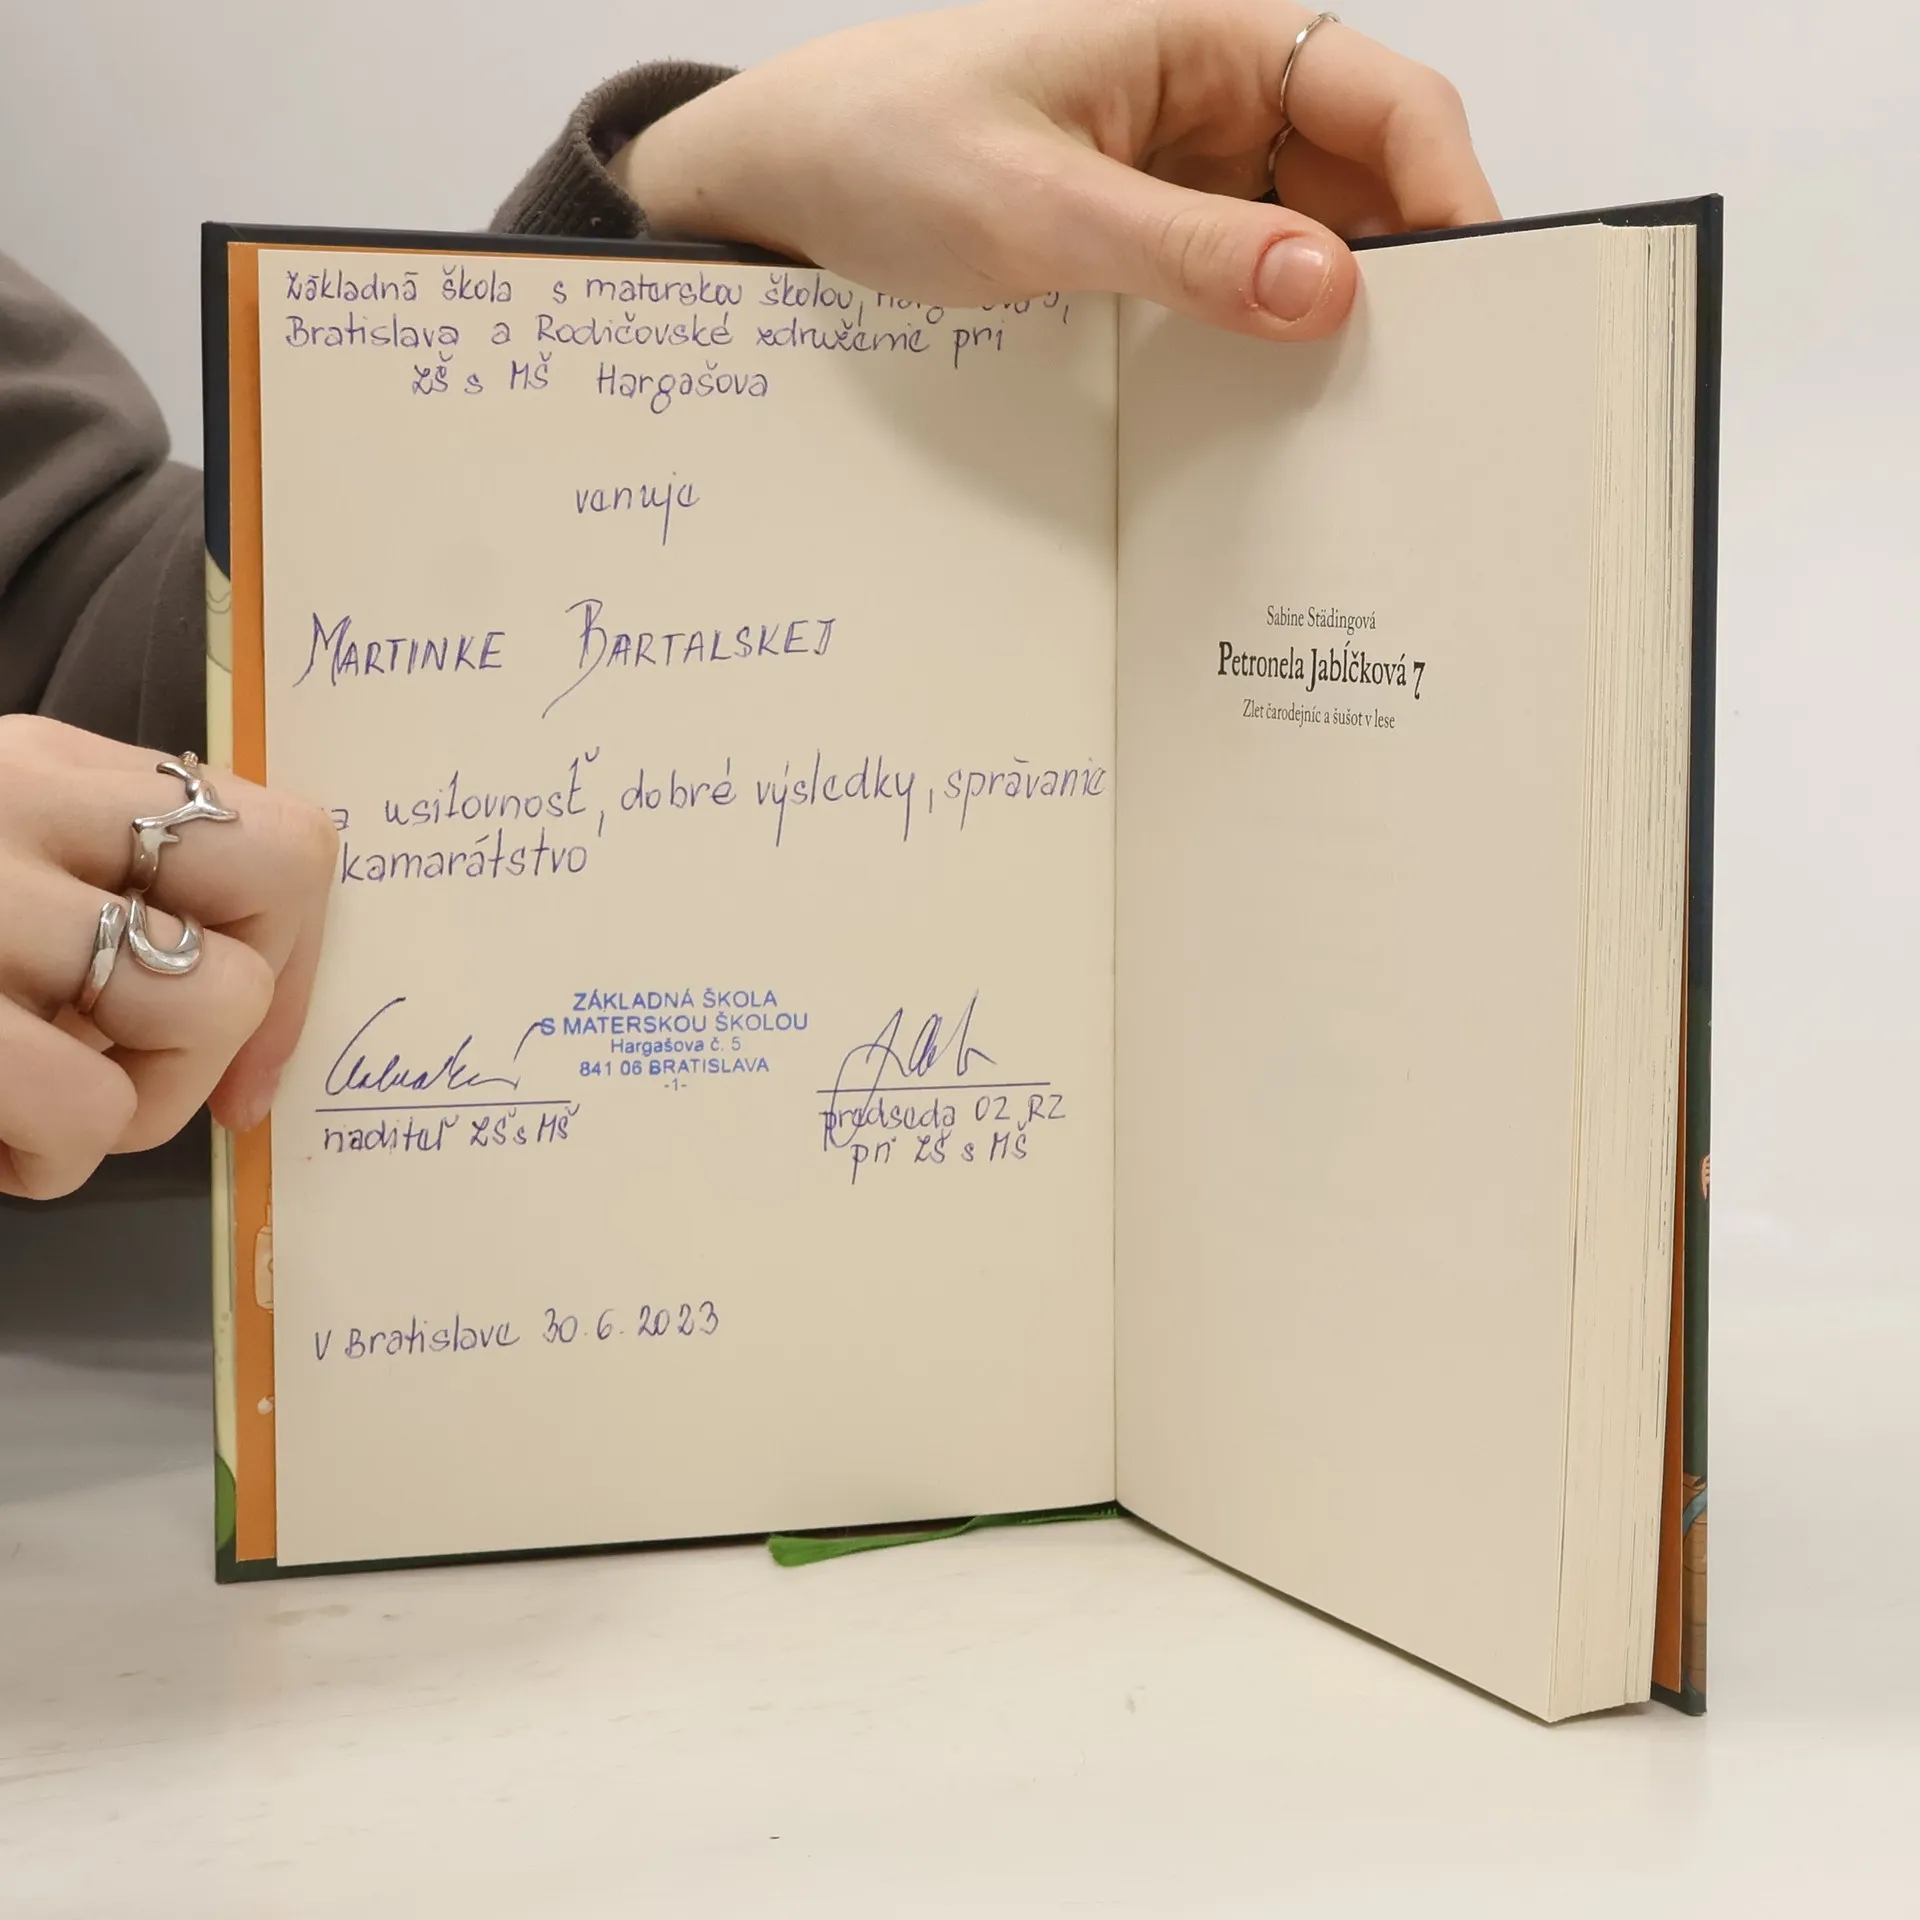 Základná škola s materskou školou,
Bratislava a Rodičovské združenie pri
ZŠ s MŠ Hargašova
venuje
MARTINKE BARTALSKEJ
usilovnosť, dobré výsledky, správanie
kamarátstvo
ZÁKLADNÁ ŠKOLA
S MATERSKOU ŠKOLOU
Hargašova č. 5
841 06 BRATISLAVA
-1-
riaditeľ ZŠ s MŠ
predseda OZ RZ
pri ZŠ s MŠ
V Bratislave 30.6.2023
Sabine Städingová
Petronela Jabĺčková 7
Zlet čarodejníc a šušot v lese